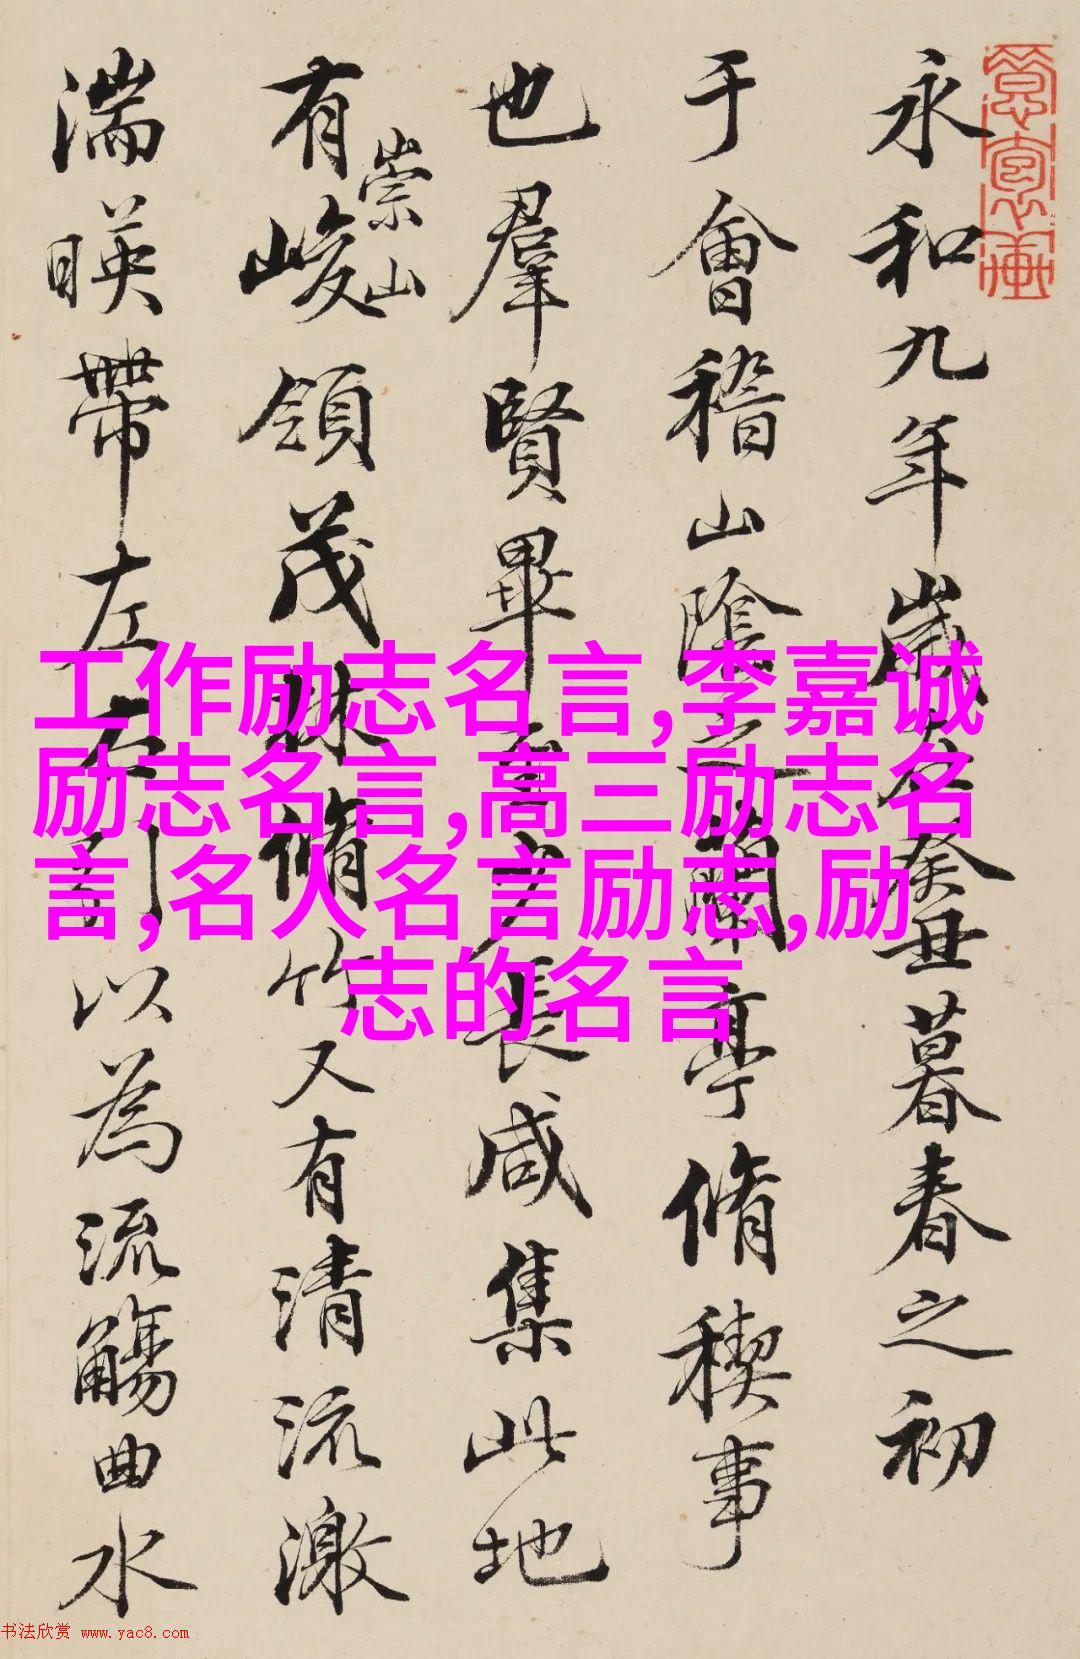 永和九年歲在癸丑暮春之初
于會稽山陰之蘭亭脩稧事
也羣賢畢至少長咸集此地
有崇山峻領茂林脩竹又有清流激
湍暎帶左右引以為流觴曲水
工作励志名言,李嘉诚
励志名言,高三励志名
言,名人名言励志,励
志的名言
书法欣赏 www.yac8.com